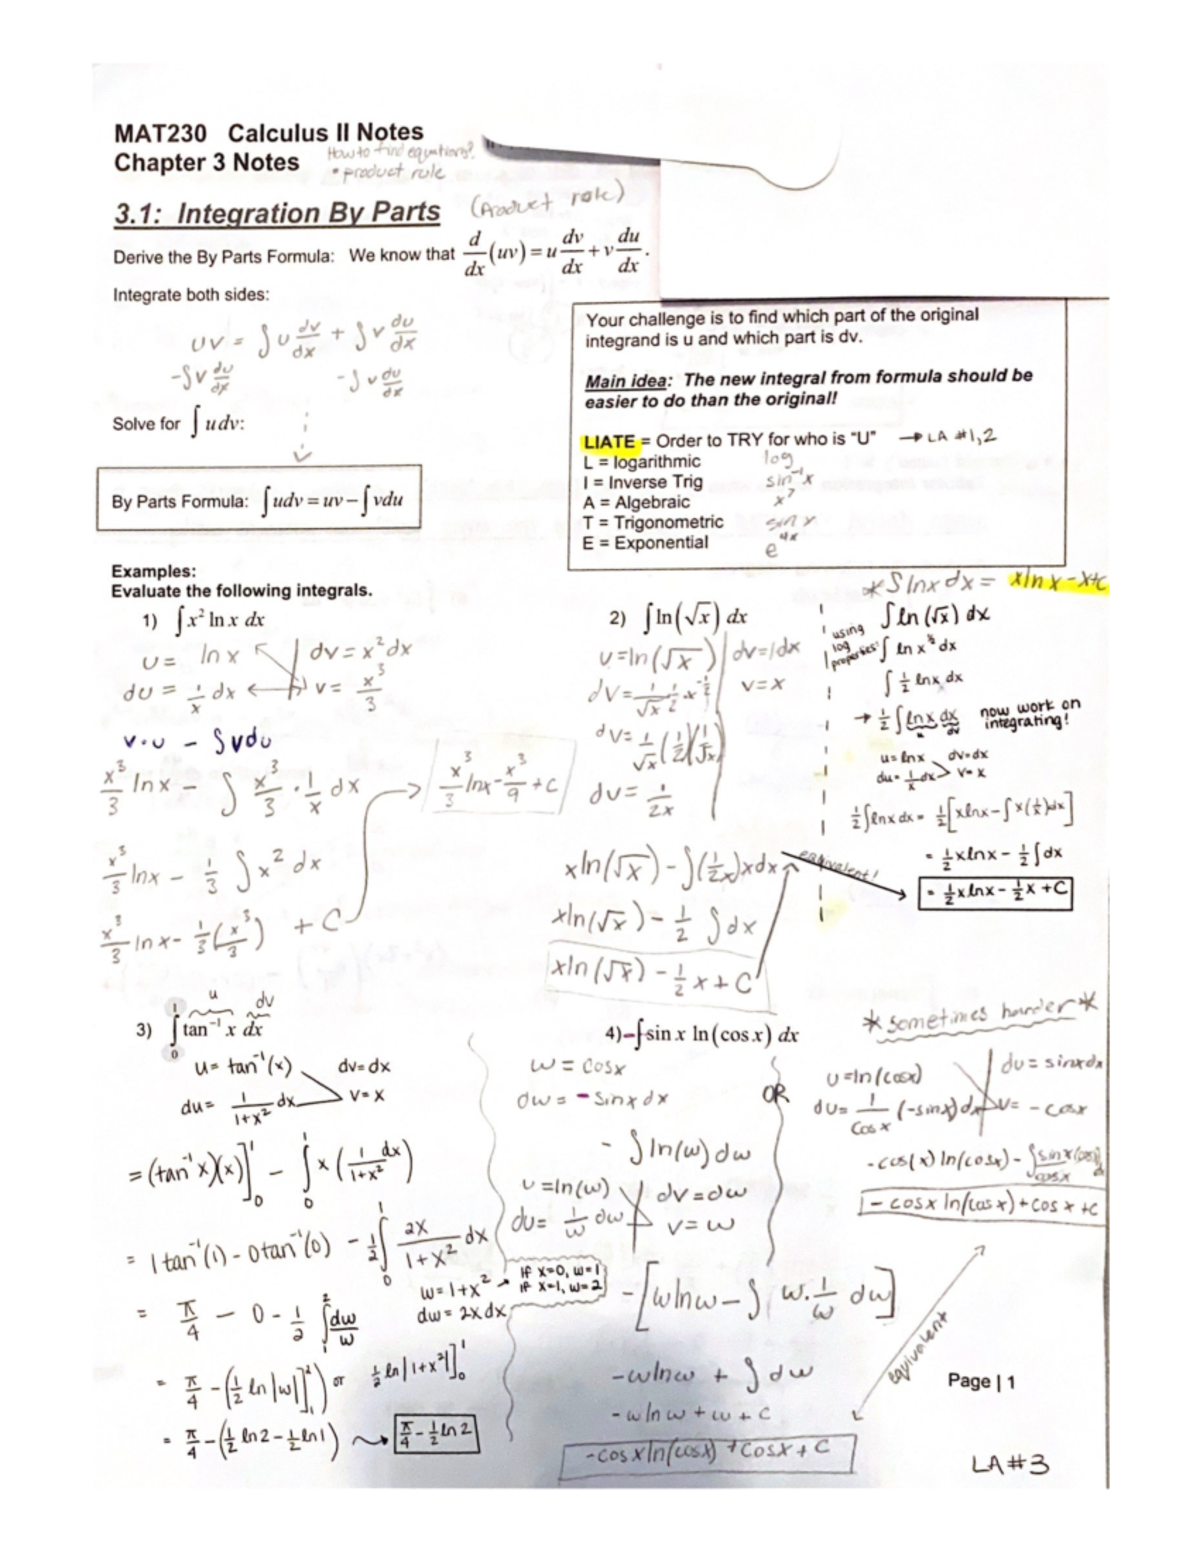 MAT230 Calculus II Notes
Chapter 3 Notes
How to find equations?
• product rule
3.1: Integration By Parts (Product rule)
Derive the By Parts Formula: We know that d/dx (uv) = u dv/dx + v du/dx .
Integrate both sides:
uv = ∫u dv/dx + ∫v du/dx
-∫v du/dx -∫v du/dx
Solve for ∫udv:
By Parts Formula: ∫udv = uv − ∫vdu
Your challenge is to find which part of the original
integrand is u and which part is dv.
Main idea: The new integral from formula should be
easier to do than the original!
LIATE = Order to TRY for who is "U" → LA #1,2
L = logarithmic log
I = Inverse Trig sin⁻¹x
A = Algebraic x⁷
T = Trigonometric sin x
E = Exponential e⁴ˣ
Examples:
Evaluate the following integrals.
1) ∫x² ln x dx
u = ln x dv = x² dx
du = 1/x dx v = x³/3
v·u − ∫vdu
x³/3 ln x − ∫ x³/3 · 1/x dx → x³/3 lnx − x³/9 + C
x³/3 lnx − 1/3 ∫x² dx
x³/3 ln x − 1/3 (x³/3) + C
2) ∫ln(√x) dx
u=ln(√x) dv=1dx
dv= 1/√x 1/2 x^-1/2 v=x
dv= 1/√x (1/2)(1/√x)
dv= 1/2x
xln(√x) − ∫(1/2x)xdx
xln(√x) − 1/2 ∫dx
xln(√x) − 1/2 x + C
equivalent!
* ∫lnx dx = xln x − x+c
∫ln(√x) dx
using log properties: ∫ ln x^½ dx
∫ 1/2 lnx dx
→ 1/2 ∫lnx dx now work on integrating!
u dv
u=lnx dv=dx
du= 1/x dx v=x
1/2 ∫lnx dx = 1/2 [xlnx − ∫x(1/x)dx]
= 1/2 xlnx − 1/2 ∫dx
= 1/2 xlnx − 1/2 x + C
3) ∫₀¹ tan⁻¹ x dx
u dv
u= tan⁻¹(x) dv=dx
du= 1/1+x² dx v=x
= (tan⁻¹x)(x)]₀¹ − ∫₀¹ x (1/1+x² dx)
= 1tan⁻¹(1) − 0tan⁻¹(0) − 1/2 ∫₀¹ 2x/1+x² dx
w=1+x² → if x=0, w=1
if x=1, w=2
dw= 2x dx
= π/4 − 0 − 1/2 ∫₁² dw/w
= π/4 − (1/2 ln|w|]₁²) or 1/2 ln|1+x²|]₀¹
= π/4 − (1/2 ln2 − 1/2 ln1) → π/4 − 1/2 ln2
4) −∫−sin x ln(cos x) dx
w = cosx
dw = −sinx dx
− ∫ln(w) dw
u=ln(w) dv=dw
du= 1/w dw v=w
−[wlnw − ∫ w·1/w dw]
−wlnw + ∫dw
−wlnw + w + C
−cosxln(cosx) + cosx + C
OR
*sometimes harder*
u=ln(cosx) du=sinxdx
du= 1/cosx (−sinx)dx v= −cosx
−cos(x) ln(cosx) − ∫ sinx(cosx)/cosx dx
−cosx ln(cosx)+cosx+c
equivalent
Page | 1
LA#3